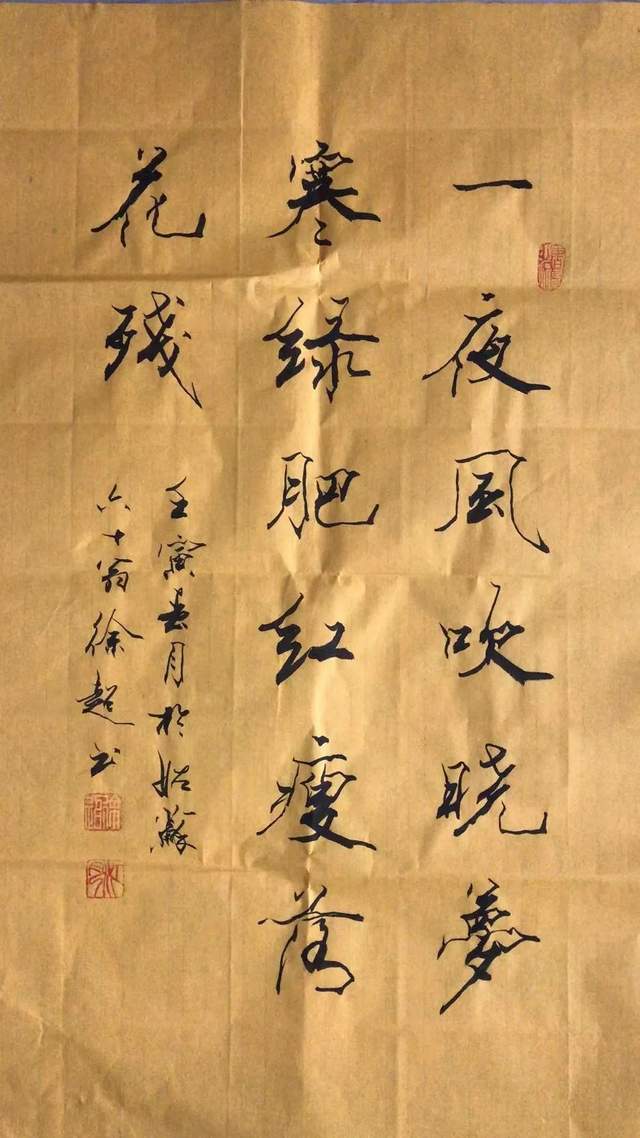 一夜風吹曉夢
寒綠肥紅瘦落
花殘
壬寅春月於姑蘇
六十翁徐超书